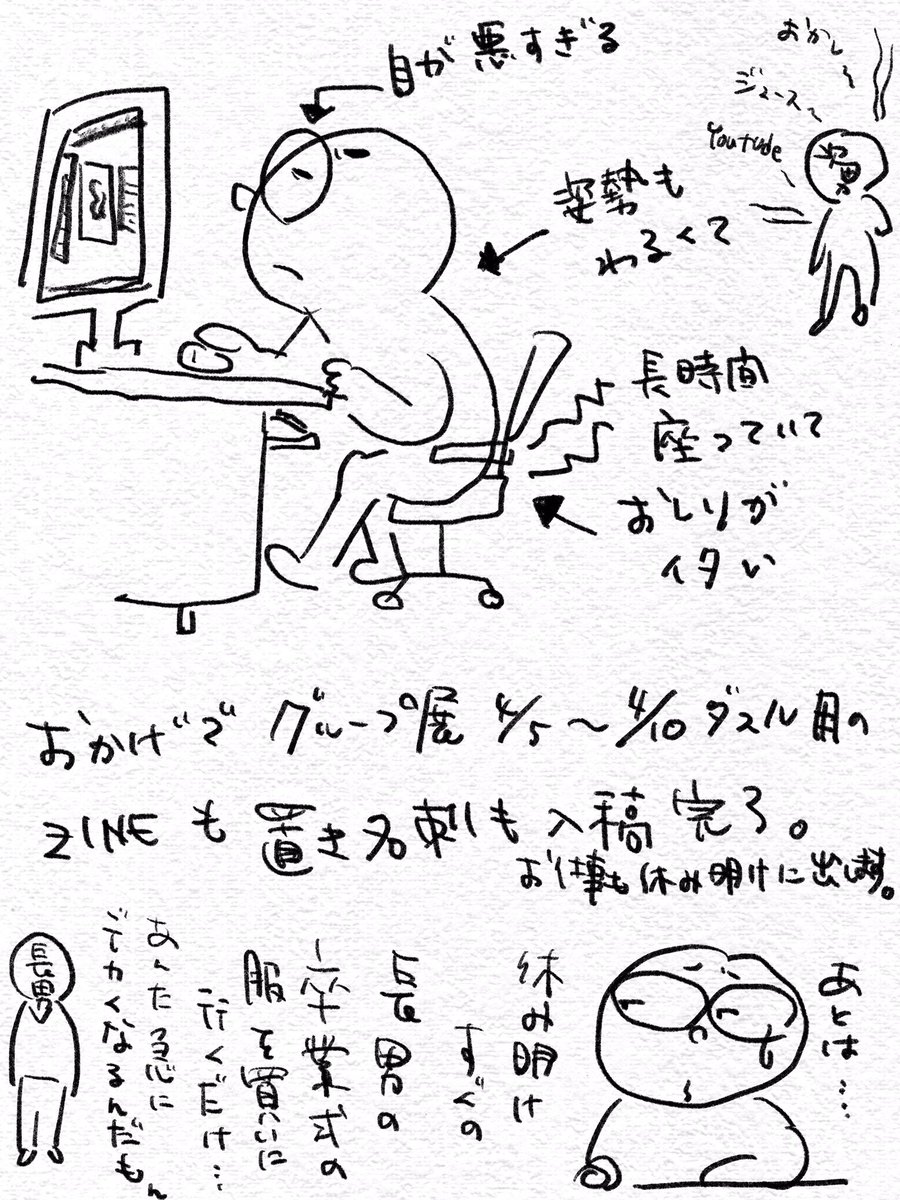 目が悪すぎる
おかし〜
ジュース〜
Youtude
次男
姿勢も
わるくて
長時間
座っていて
おしりが
イタい
おかげで グループ展 4/5〜4/10 ダスル目の
ZINEも 置き名刺も 入稿完了。
お仕事も休み明けに出します。
あとは…
休み明け
すぐの
長男の
卒業式の
服を買いに
行くだけ…
あんた急に
デカくなるんだもん
長男